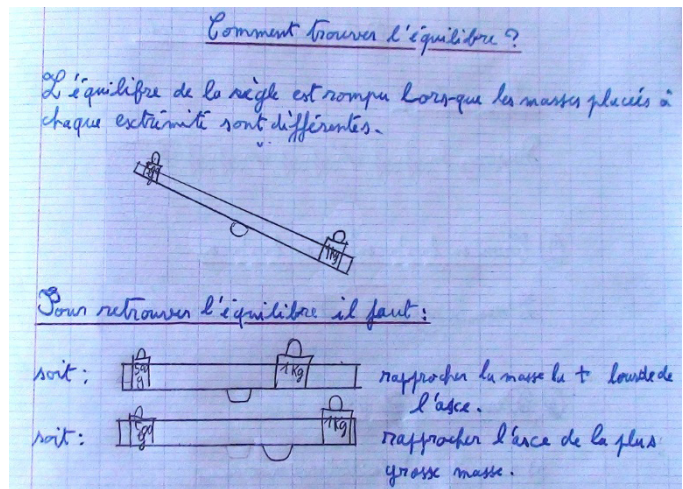 Comment trouver l'équilibre ?
L'équilibre de la règle est rompu lors-que les masses placées à
chaque extrémité sont différentes.
1Kg
Pour retrouver l'équilibre il faut :
soit : 500 g 1 Kg rapprocher la masse la + lourde de
l'axe.
soit : 500 g 1Kg rapprocher l'axe de la plus
grosse masse.